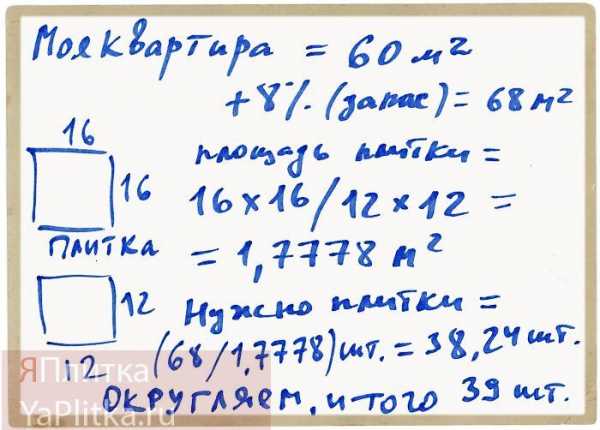 Моя квартира = 60 м²
+ 8% (запас) = 68 м²
16
площадь плитки =
16
16 x 16 / 12 x 12 =
Плитка
= 1,7778 м²
12
Нужно плитки =
12
(68/1,7778) шт. = 38,24 шт.
Округляем, итого 39 шт.
ЯПлитка
YaPlitka.ru